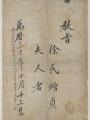 教旨
徐氏贈貞
夫人者
萬曆三十年十月十三日